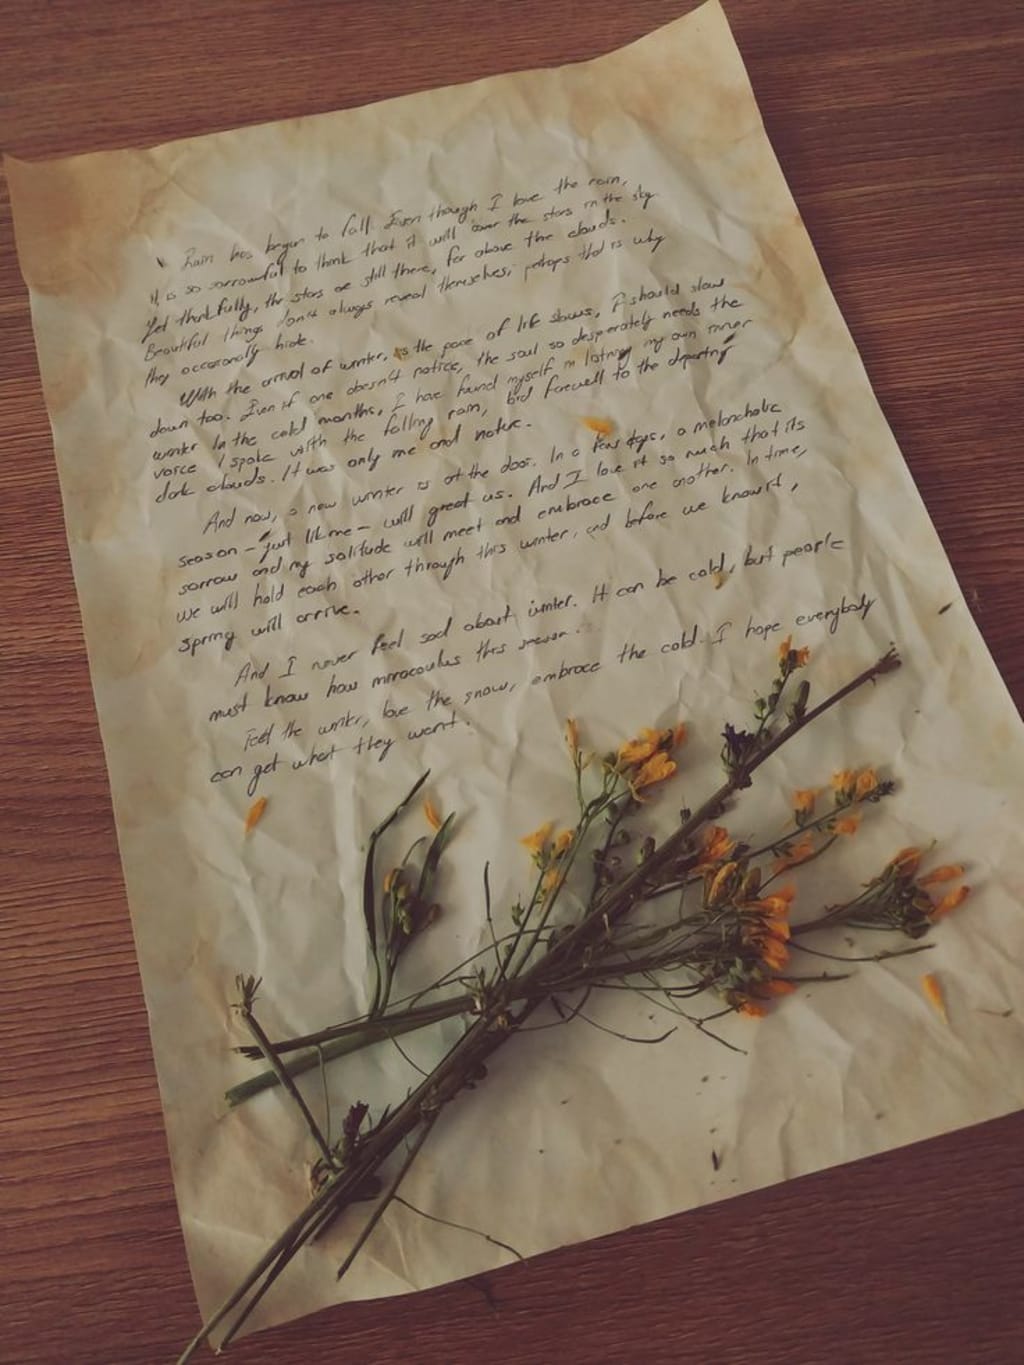 Rain has begun to fall. Even though I love the rain,
it is so sorrowful to think that it will cover the stars in the sky.
Yet thankfully, the stars are still there, far above the clouds.
Beautiful things don't always reveal themselves; perhaps that is why
they occasionally hide.
With the arrival of winter, as the pace of life slows, I should slow
down too. Even if one doesn't notice, the soul so desperately needs the
winter. In the cold months, I have found myself in listning my own inner
voice. I spoke with the falling rain, bid farewell to the departing
dark clouds. It was only me and nature.
And now, a new winter is at the door. In a few days, a melancholic
season - just like me - will greet us. And I love it so much that its
sorrow and my solitude will meet and embrace one another. In time,
we will hold each other through this winter, and before we know it,
spring will arrive.
And I never feel sad about winter. It can be cold, but people
must know how miracoulus this season.
Feel the winter, love the snow, embrace the cold. I hope everybody
can get what they want.